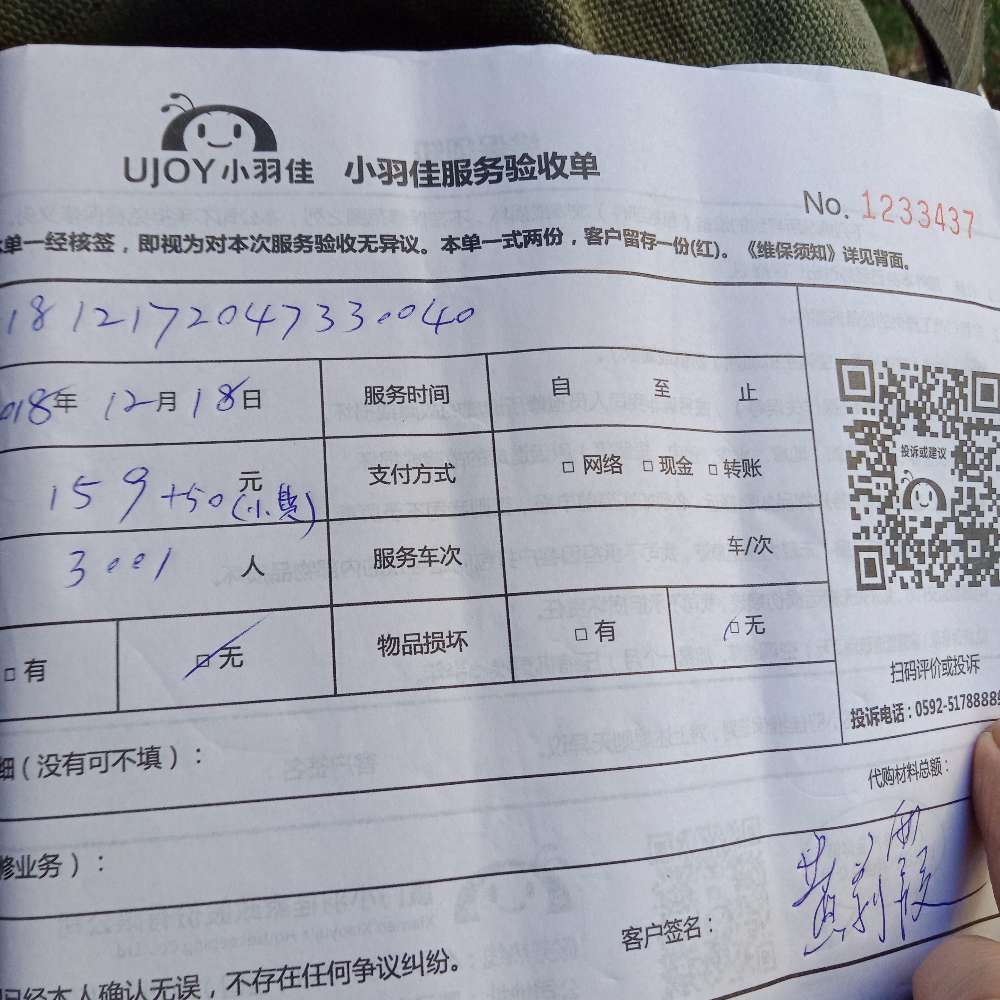 UJOY小羽佳 小羽佳服务验收单
No. 1233437
本单一经核签，即视为对本次服务验收无异议。本单一式两份，客户留存一份(红)。《维保须知》详见背面。
1812172047330040
018年 12月 18日 服务时间 自 至 止
159+50(小费) 元 支付方式 □ 网络 □ 现金 □ 转账
人 服务车次 车/次
投诉或建议
□ 有 □ 无 物品损坏 □ 有 □ 无
扫码评价或投诉
投诉电话：0592-5178888
细（没有可不填）：
代购材料总额：
修业务）：
客户签名：
已经本人确认无误，不存在任何争议纠纷。